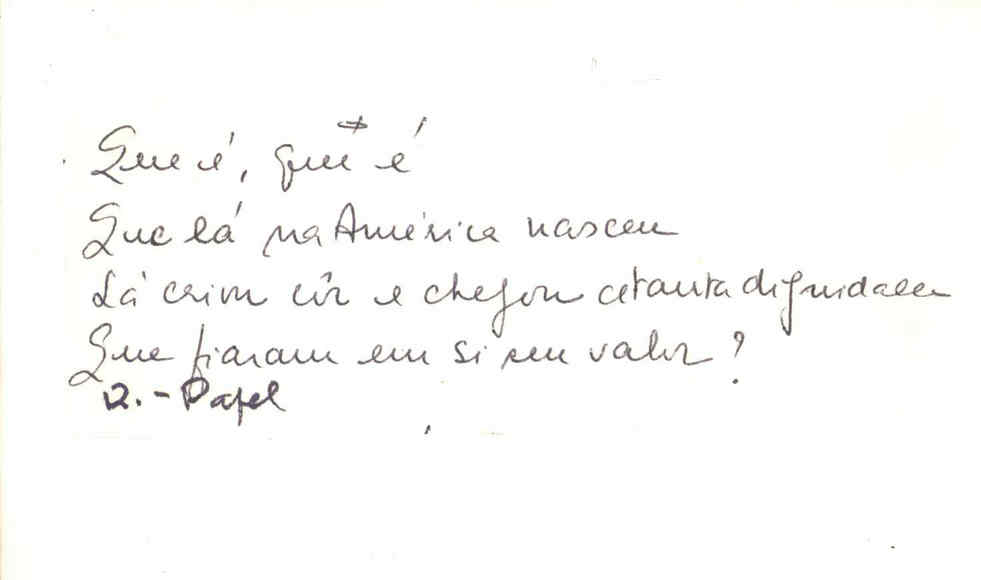 Que é, que é
Que lá na América nasceu
Lá criou côr e chegou a tanta dignidade
Que fiaram em si seu valor?
R. - Papel